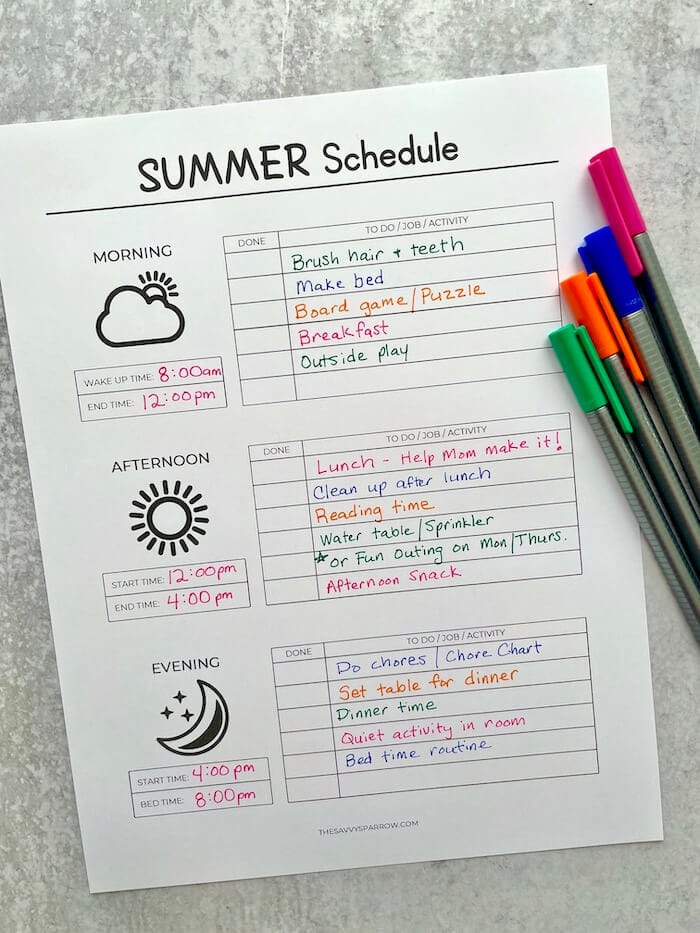 SUMMER Schedule
MORNING
WAKE UP TIME: 8:00am
END TIME: 12:00pm
DONE TO DO / JOB / ACTIVITY
Brush hair + teeth
Make bed
Board game/Puzzle
Breakfast
Outside play
AFTERNOON
START TIME: 12:00pm
END TIME: 4:00pm
DONE TO DO / JOB / ACTIVITY
Lunch - Help Mom make it!
Clean up after lunch
Reading time
Water table/Sprinkler
* or Fun Outing on Mon/Thurs.
Afternoon Snack
EVENING
START TIME: 4:00pm
BED TIME: 8:00pm
DONE TO DO / JOB / ACTIVITY
Do chores / Chore Chart
Set table for dinner
Dinner time
Quiet activity in room
Bed time routine
THESAVVYSPARROW.COM